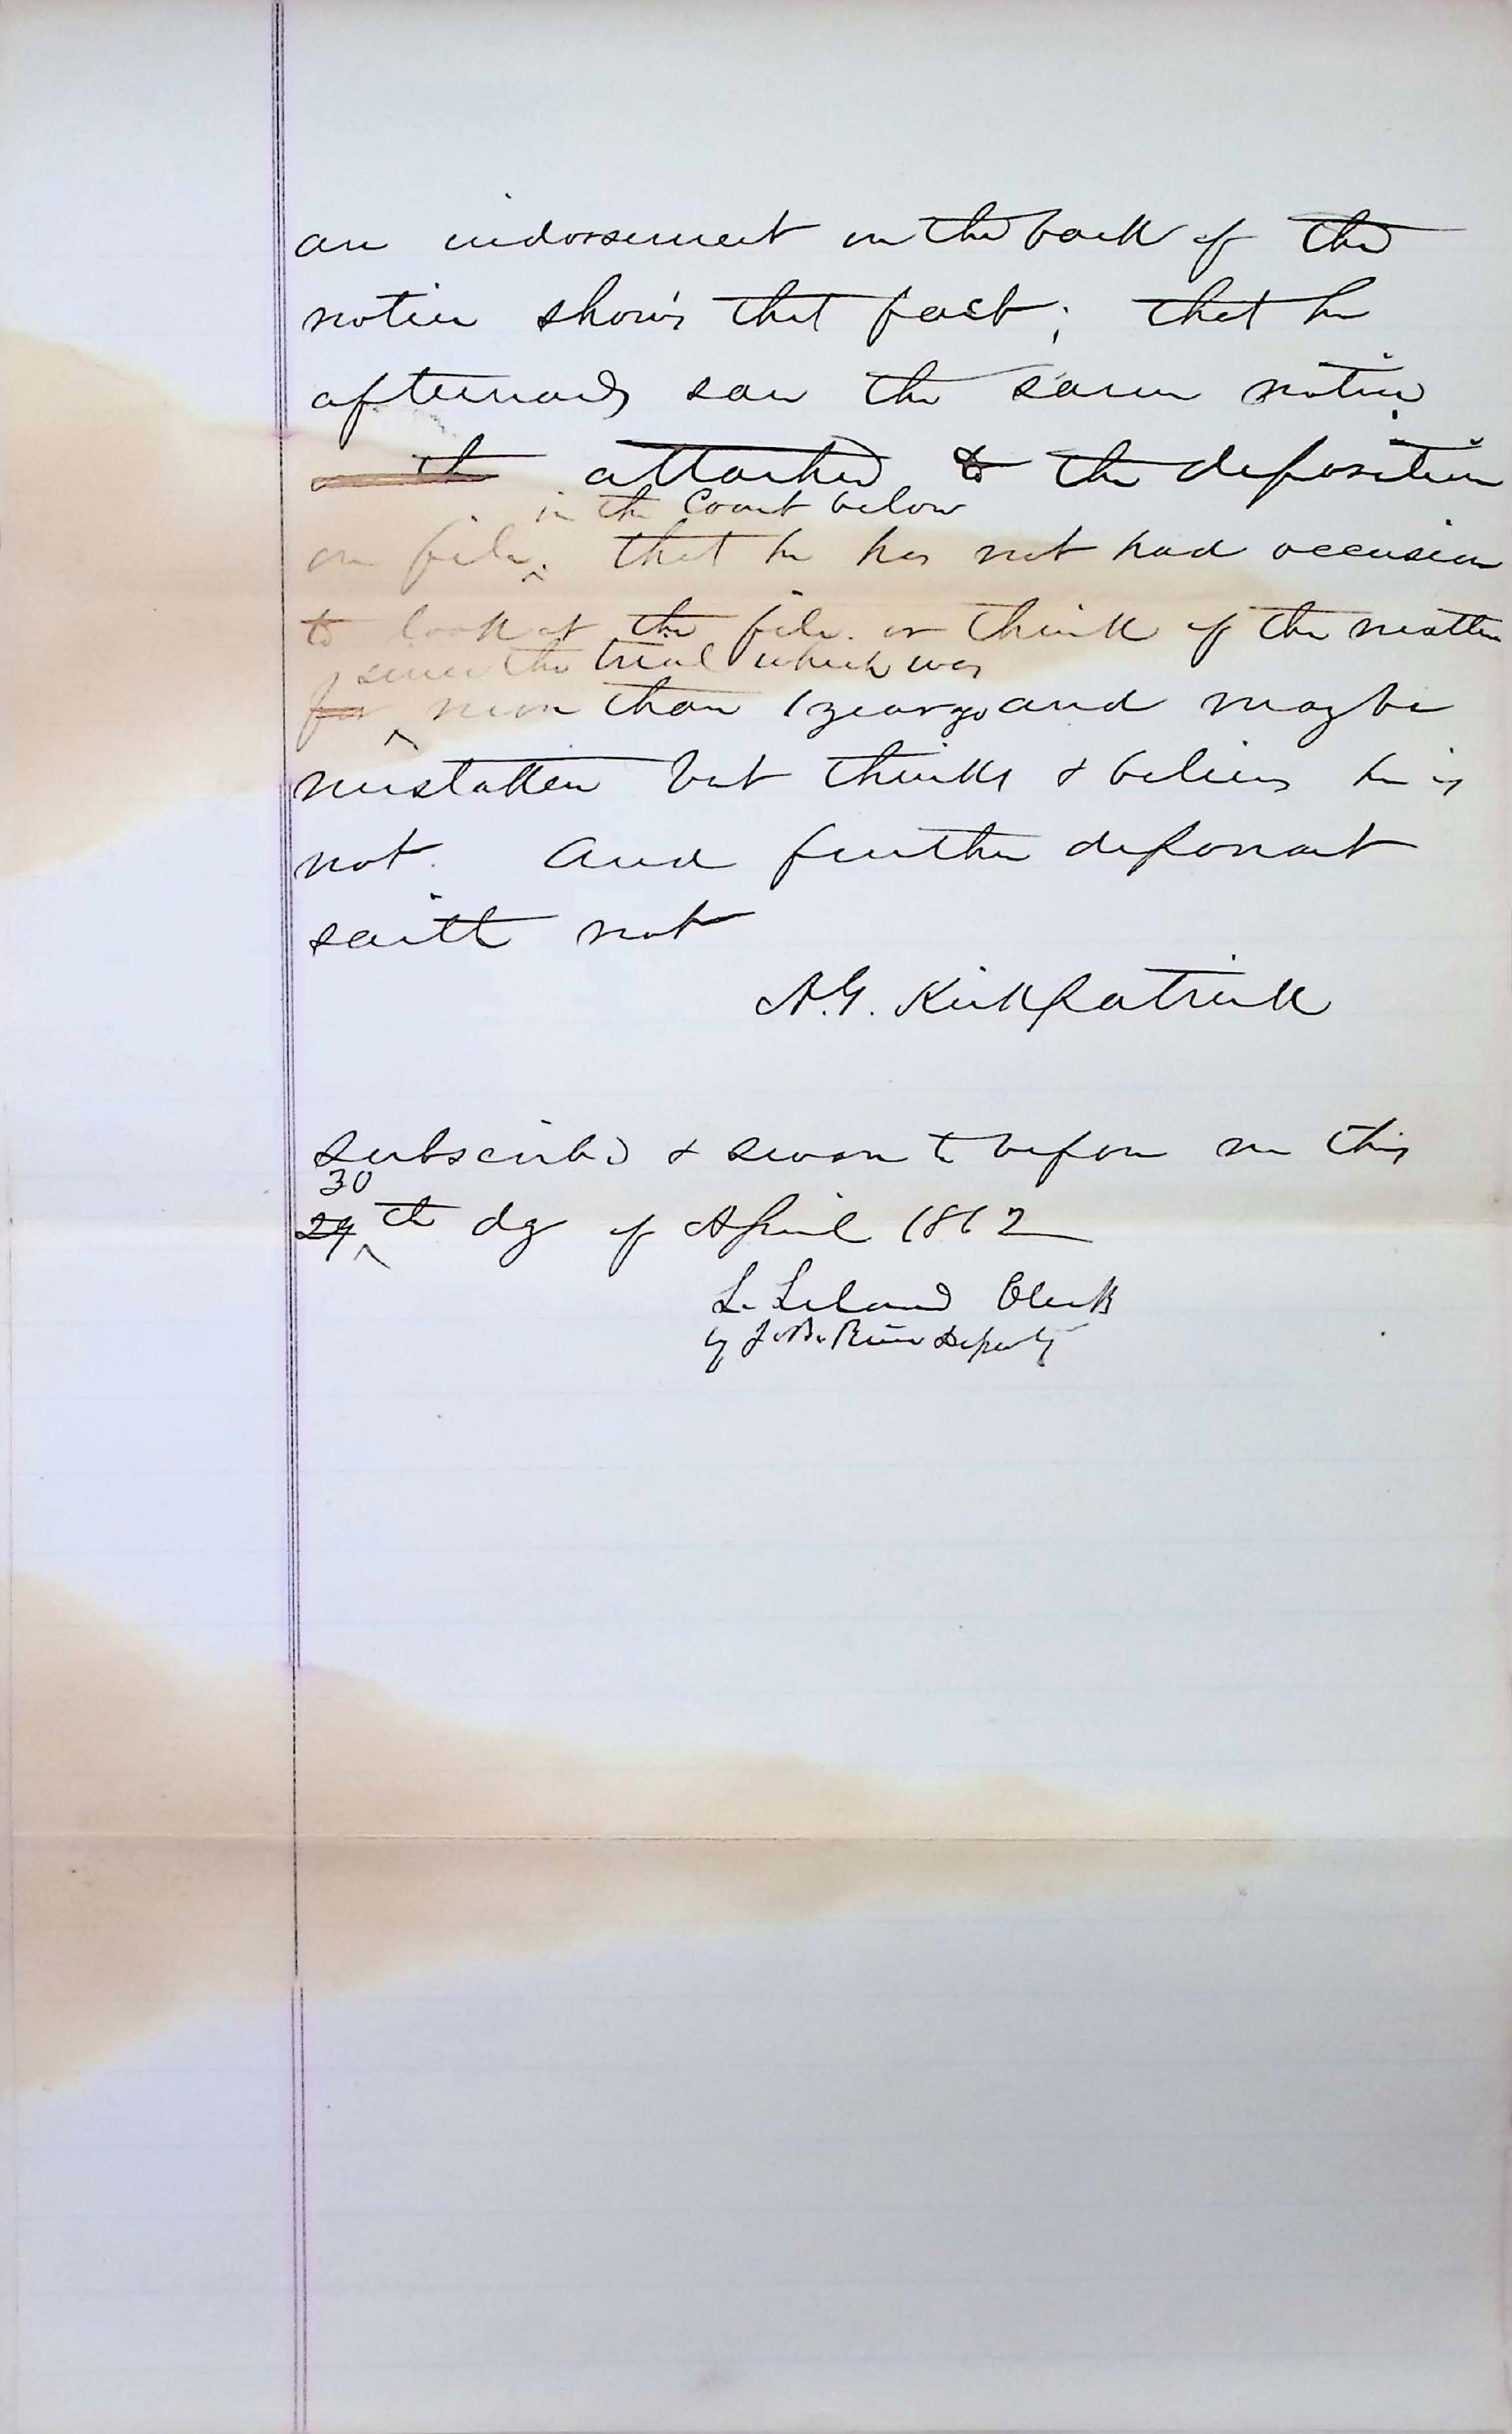 an indorsement on the back of the
notice shows that fact; that he
afterwards saw the same notice
attached to the deposition
in the Court below
on file. that he has not had occasion
to look at the file. or think of the matter
since the trial which was
for more than 1 year ago and may be
mistaken but thinks & believes he is
not. And further deponant
saith not
A.G. Kirkpatrick
Subscribed & sworn to before me this
30
29 th day of April 1862
L. Leland Clerk
by J.B. Rice Deputy